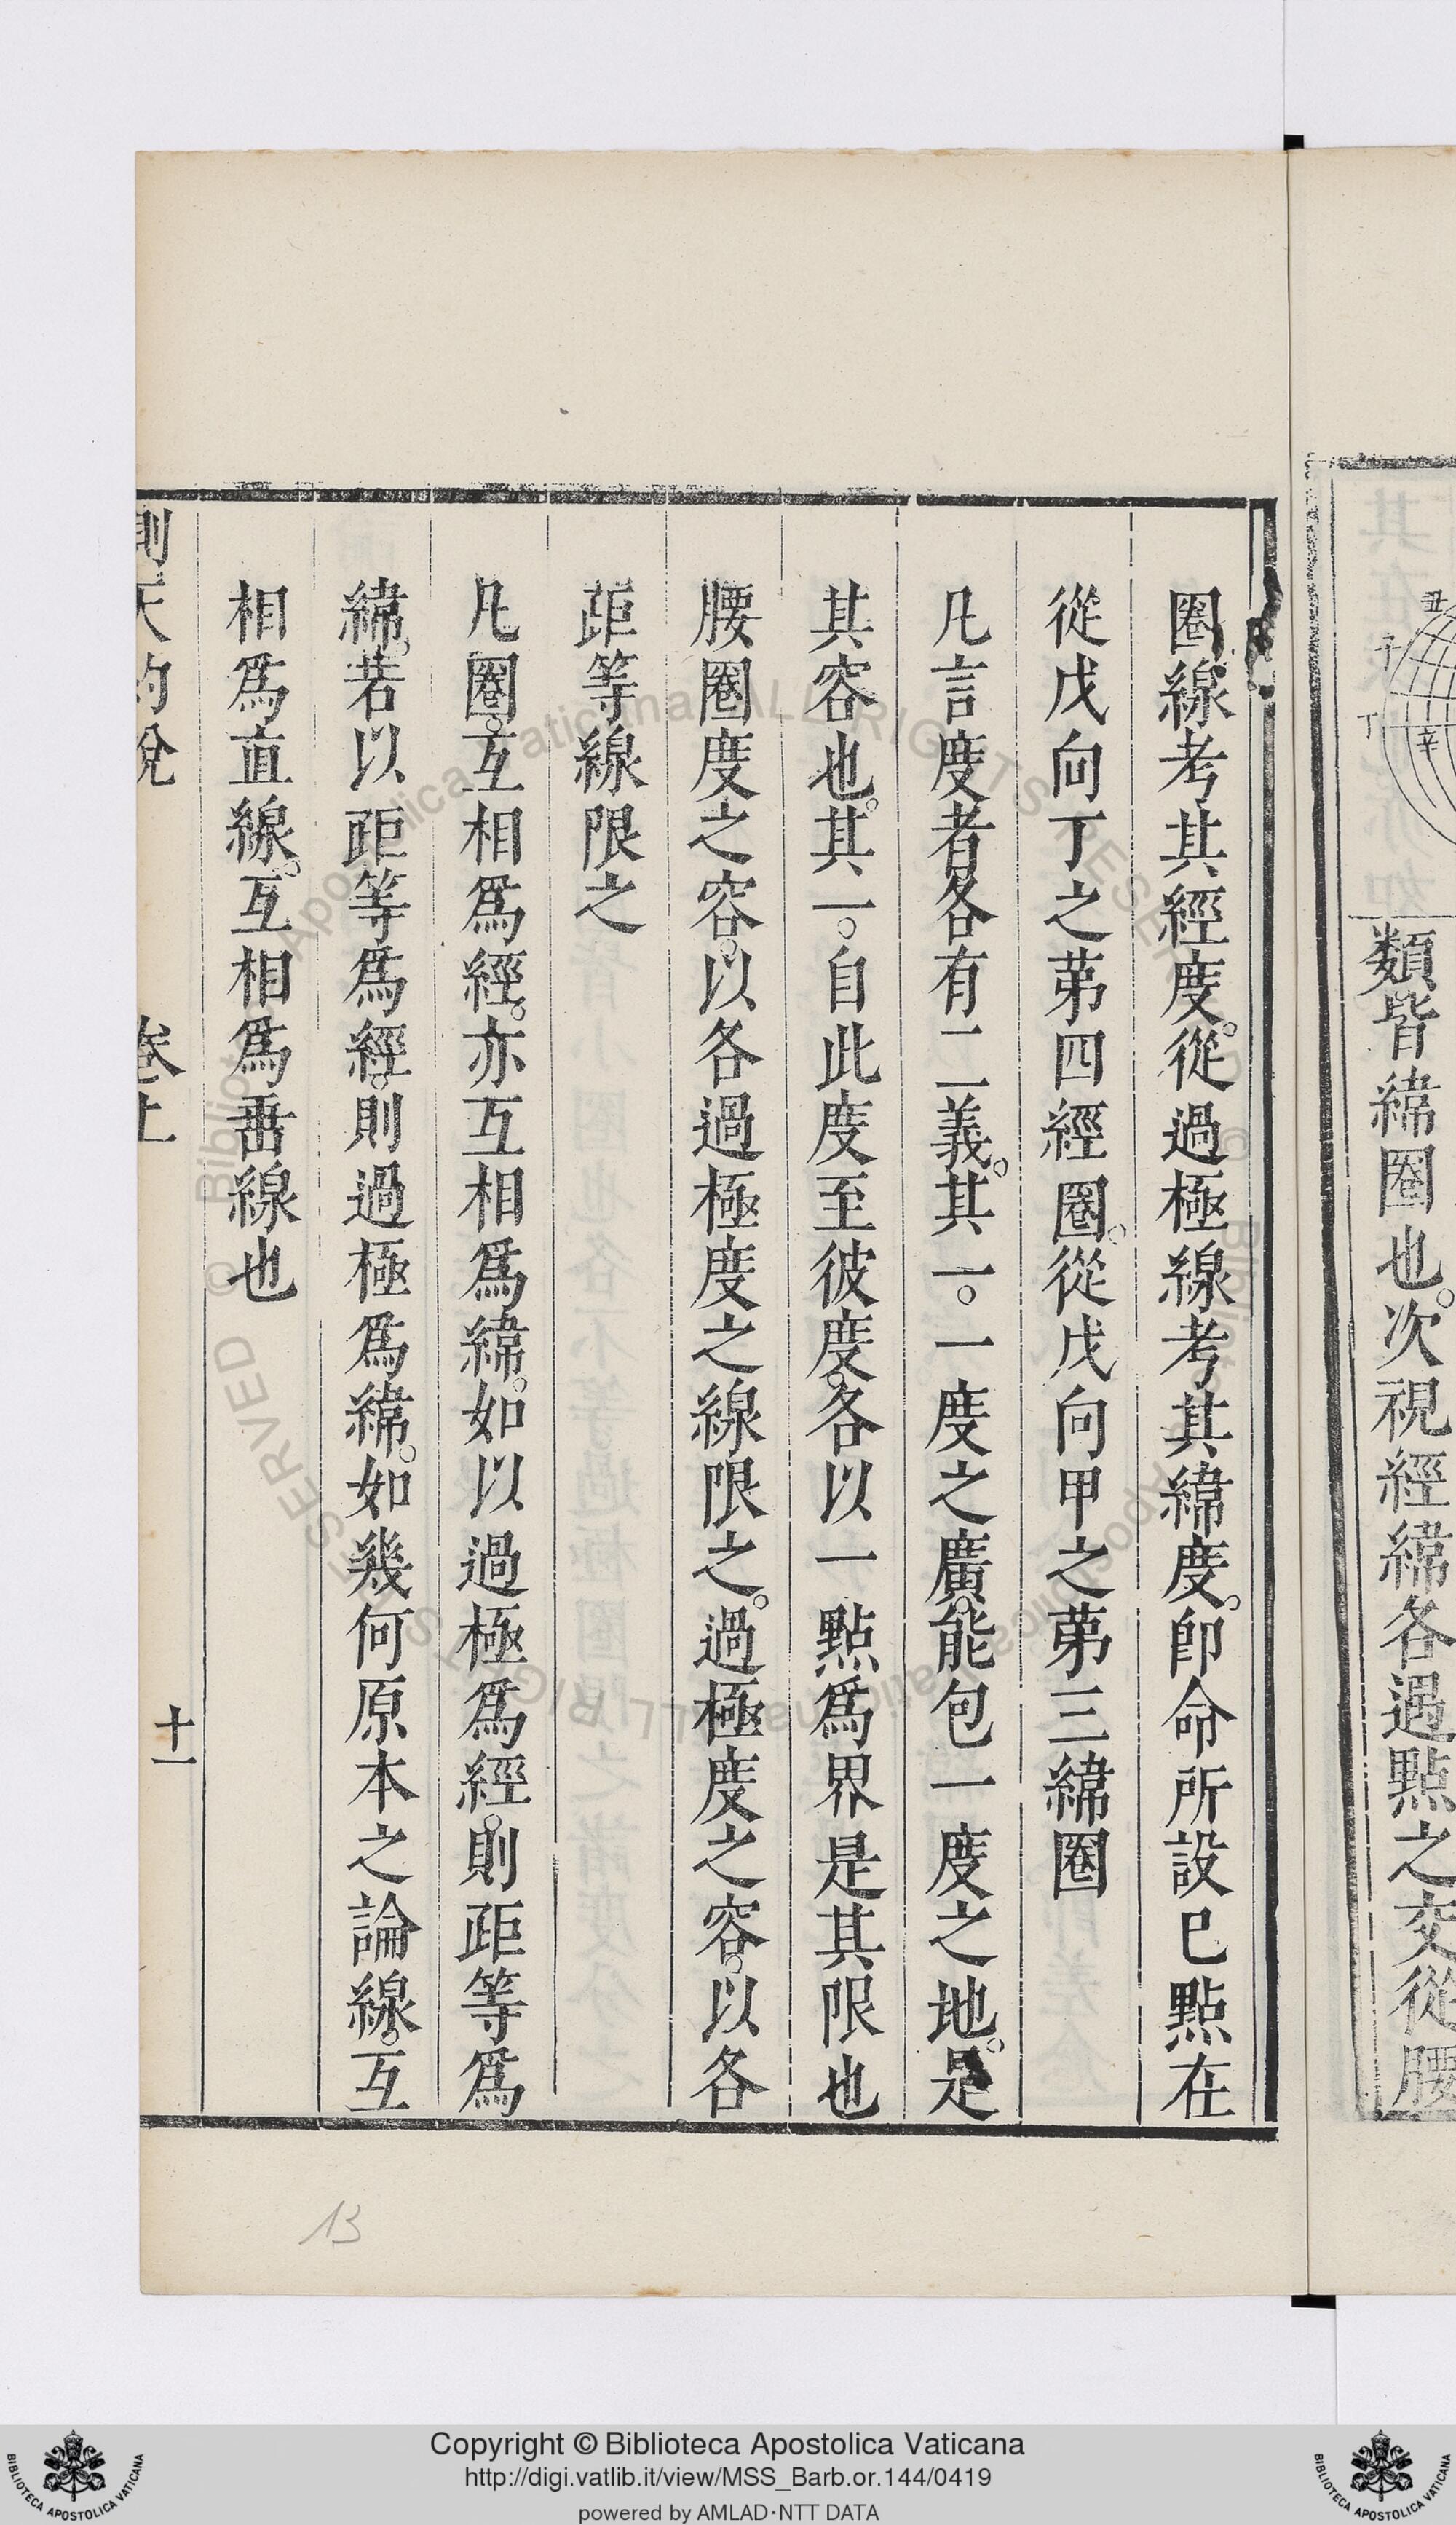 丑
子
丁
辛
類皆緯圈也。次視經緯各遇點之交從腰
圈線考其經度。從過極線考其緯度。卽命所設巳點在
從戊向丁之苐四經圈。從戊向甲之苐三緯圈
凡言度者各有二義。其一。一度之廣。能包一度之地。是
其容也。其一。自此度至彼度。各以一點爲界是其限也
腰圈度之容。以各過極度之線限之。過極度之容。以各
距等線限之
凡圈。互相爲經。亦互相爲緯。如以過極爲經。則距等爲
緯。若以距等爲經。則過極爲緯。如幾何原本之論線。互
相爲直線。互相爲垂線也
測天約說
卷上
十一
13
Copyright © Biblioteca Apostolica Vaticana
http://digi.vatlib.it/view/MSS_Barb.or.144/0419
powered by AMLAD·NTT DATA
BIBLIOTECA APOSTOLICA VATICANA
BIBLIOTECA APOSTOLICA VATICANA